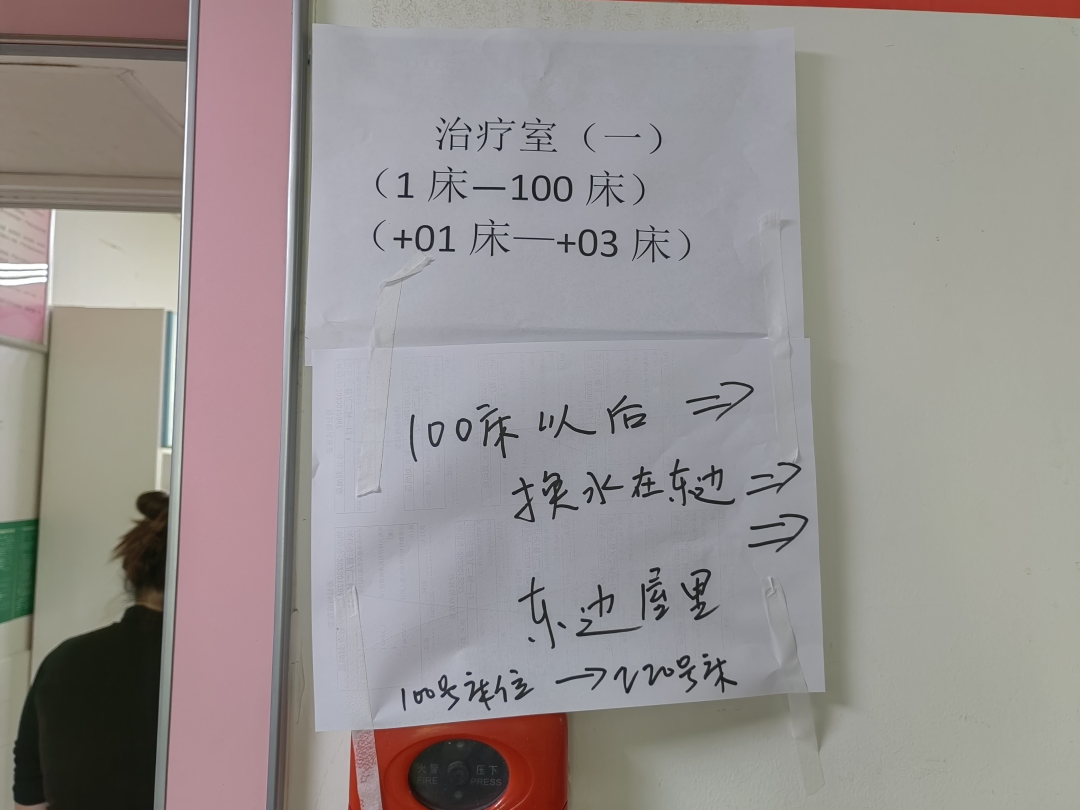 治疗室（一）
（1 床—100 床）
（+01 床—+03 床）
100床以后 ⇒
换水在东边 ⇒
⇒
东边屋里
100号床位 → 220号床
火警 压下
FIRE PRESS